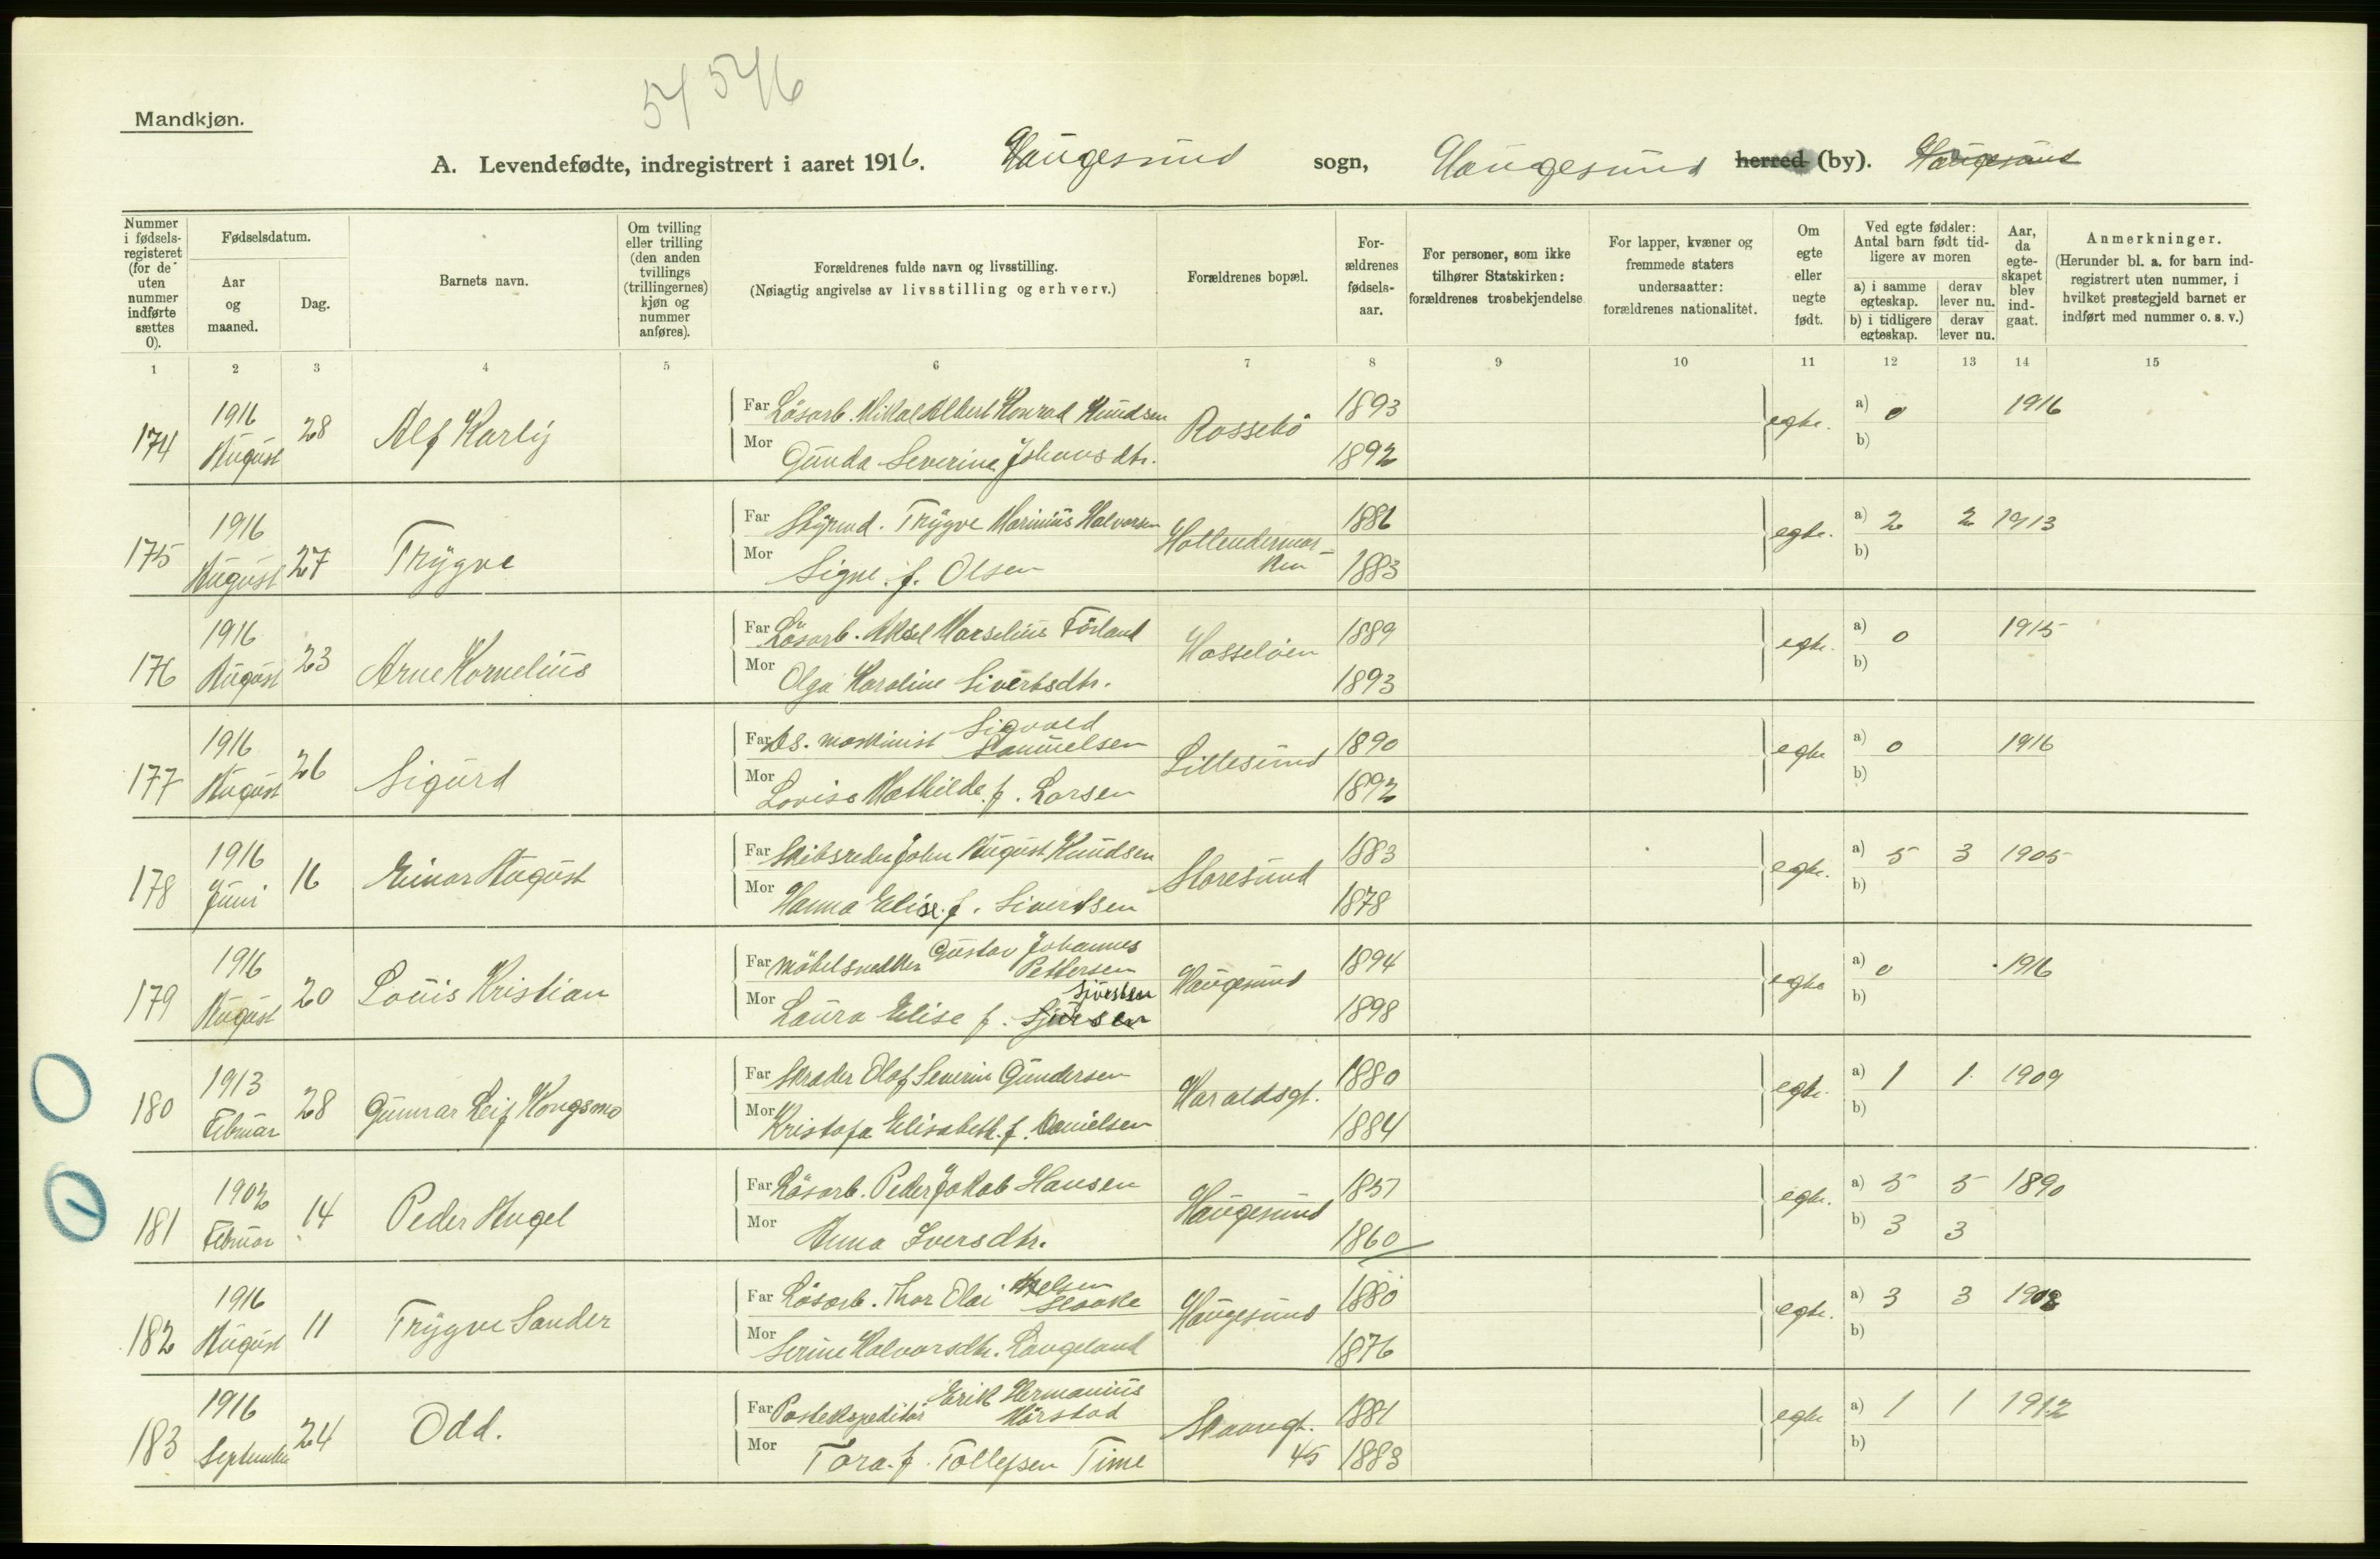 54 546
Mandkjøn.
A. Levendefødte, indregistrert i aaret 1916. Haugesund sogn, Haugesund herred (by). Haugesund
Nummer i fødsels-registeret (for de uten nummer indførte sættes 0).
Fødselsdatum.
Aar og maaned.
Dag.
Barnets navn.
Om tvilling eller trilling (den anden tvillings (trillingernes) kjøn og nummer anføres).
Forældrenes fulde navn og livsstilling.
(Nøiagtig angivelse av livsstilling og erhverv.)
Forældrenes bopæl.
For-ældrenes fødsels-aar.
For personer, som ikke tilhører Statskirken: forældrenes trosbekjendelse
For lapper, kvæner og fremmede staters undersaatter: forældrenes nationalitet.
Om egte eller uegte født.
Ved egte fødsler: Antal barn født tid-ligere av moren
a) i samme egteskap. derav lever nu.
b) i tidligere egteskap. derav lever nu.
Aar, da egte-skapet blev ind-gaat.
Anmerkninger.
(Herunder bl. a. for barn ind-registrert uten nummer, i hvilket prestegjeld barnet er indført med nummer o. s. v.)
1 2 3 4 5 6 7 8 9 10 11 12 13 14 15
174 1916 August 28 Alf Karly
Far Løsarb. Mikal Albert Konrad Knudsen Rossebø 1893 egte. a) 0 1916
Mor Gunda Severine Johansdtr. 1892 b)
175 1916 August 27 Trygve
Far Styrmd. Trygve Marinius Halvorsen 1886 egte. a) 2 2 1913
Mor Signe f. Olsen 1883 b)
176 1916 August 23 Arne Kornelius
Far Løsarb. Aksel Marselius Førland Hasseløen 1889 egte. a) 0 1915
Mor Olga Karoline Sivertsdtr. 1893 b)
177 1916 August 26 Sigurd
Far Ds. maskinist Sigvald Samuelsen Lillesund 1890 egte a) 0 1916
Mor Lovise Mathilde f. Larsen 1892 b)
178 1916 Juni 16 Einar August
Far Skibsreder John August Knudsen Storesund 1883 egte. a) 5 3 1905
Mor Hanna Elise f. Sivertsen 1878 b)
179 1916 August 20 Louis Kristian
Far Møbelsnekker Gustav Johannes Pettersen Haugesund 1894 egte a) 0 1916
Mor Laura Elise f. Sjursen 1898 b)
180 1913 Februar 28 Gunnar Leif Kongsmo
Far Skræder Olaf Severin Gundersen Haraldsgt. 1880 egte. a) 1 1 1909
Mor Kristofa Elisabeth f. Danielsen 1884 b)
181 1902 Februar 14 Peder Angel
Far Løsarb. Peder Jakob Hansen Haugesund 1857 egte. a) 5 5 1890
Mor Anna Iversdtr. 1860 b) 3 3
182 1916 August 11 Trygve Sander
Far Løsarb. Thor Olai Haugesund 1880 egte. a) 3 3 1908
Mor Serine Halvorsdtr. Langeland 1876 b)
183 1916 September 24 Odd.
Far Postekspeditør Erik Hermanius Mørstad 1881 egte a) 1 1 1912
Mor Tora f. Tollefsen Time 45 1883 b)